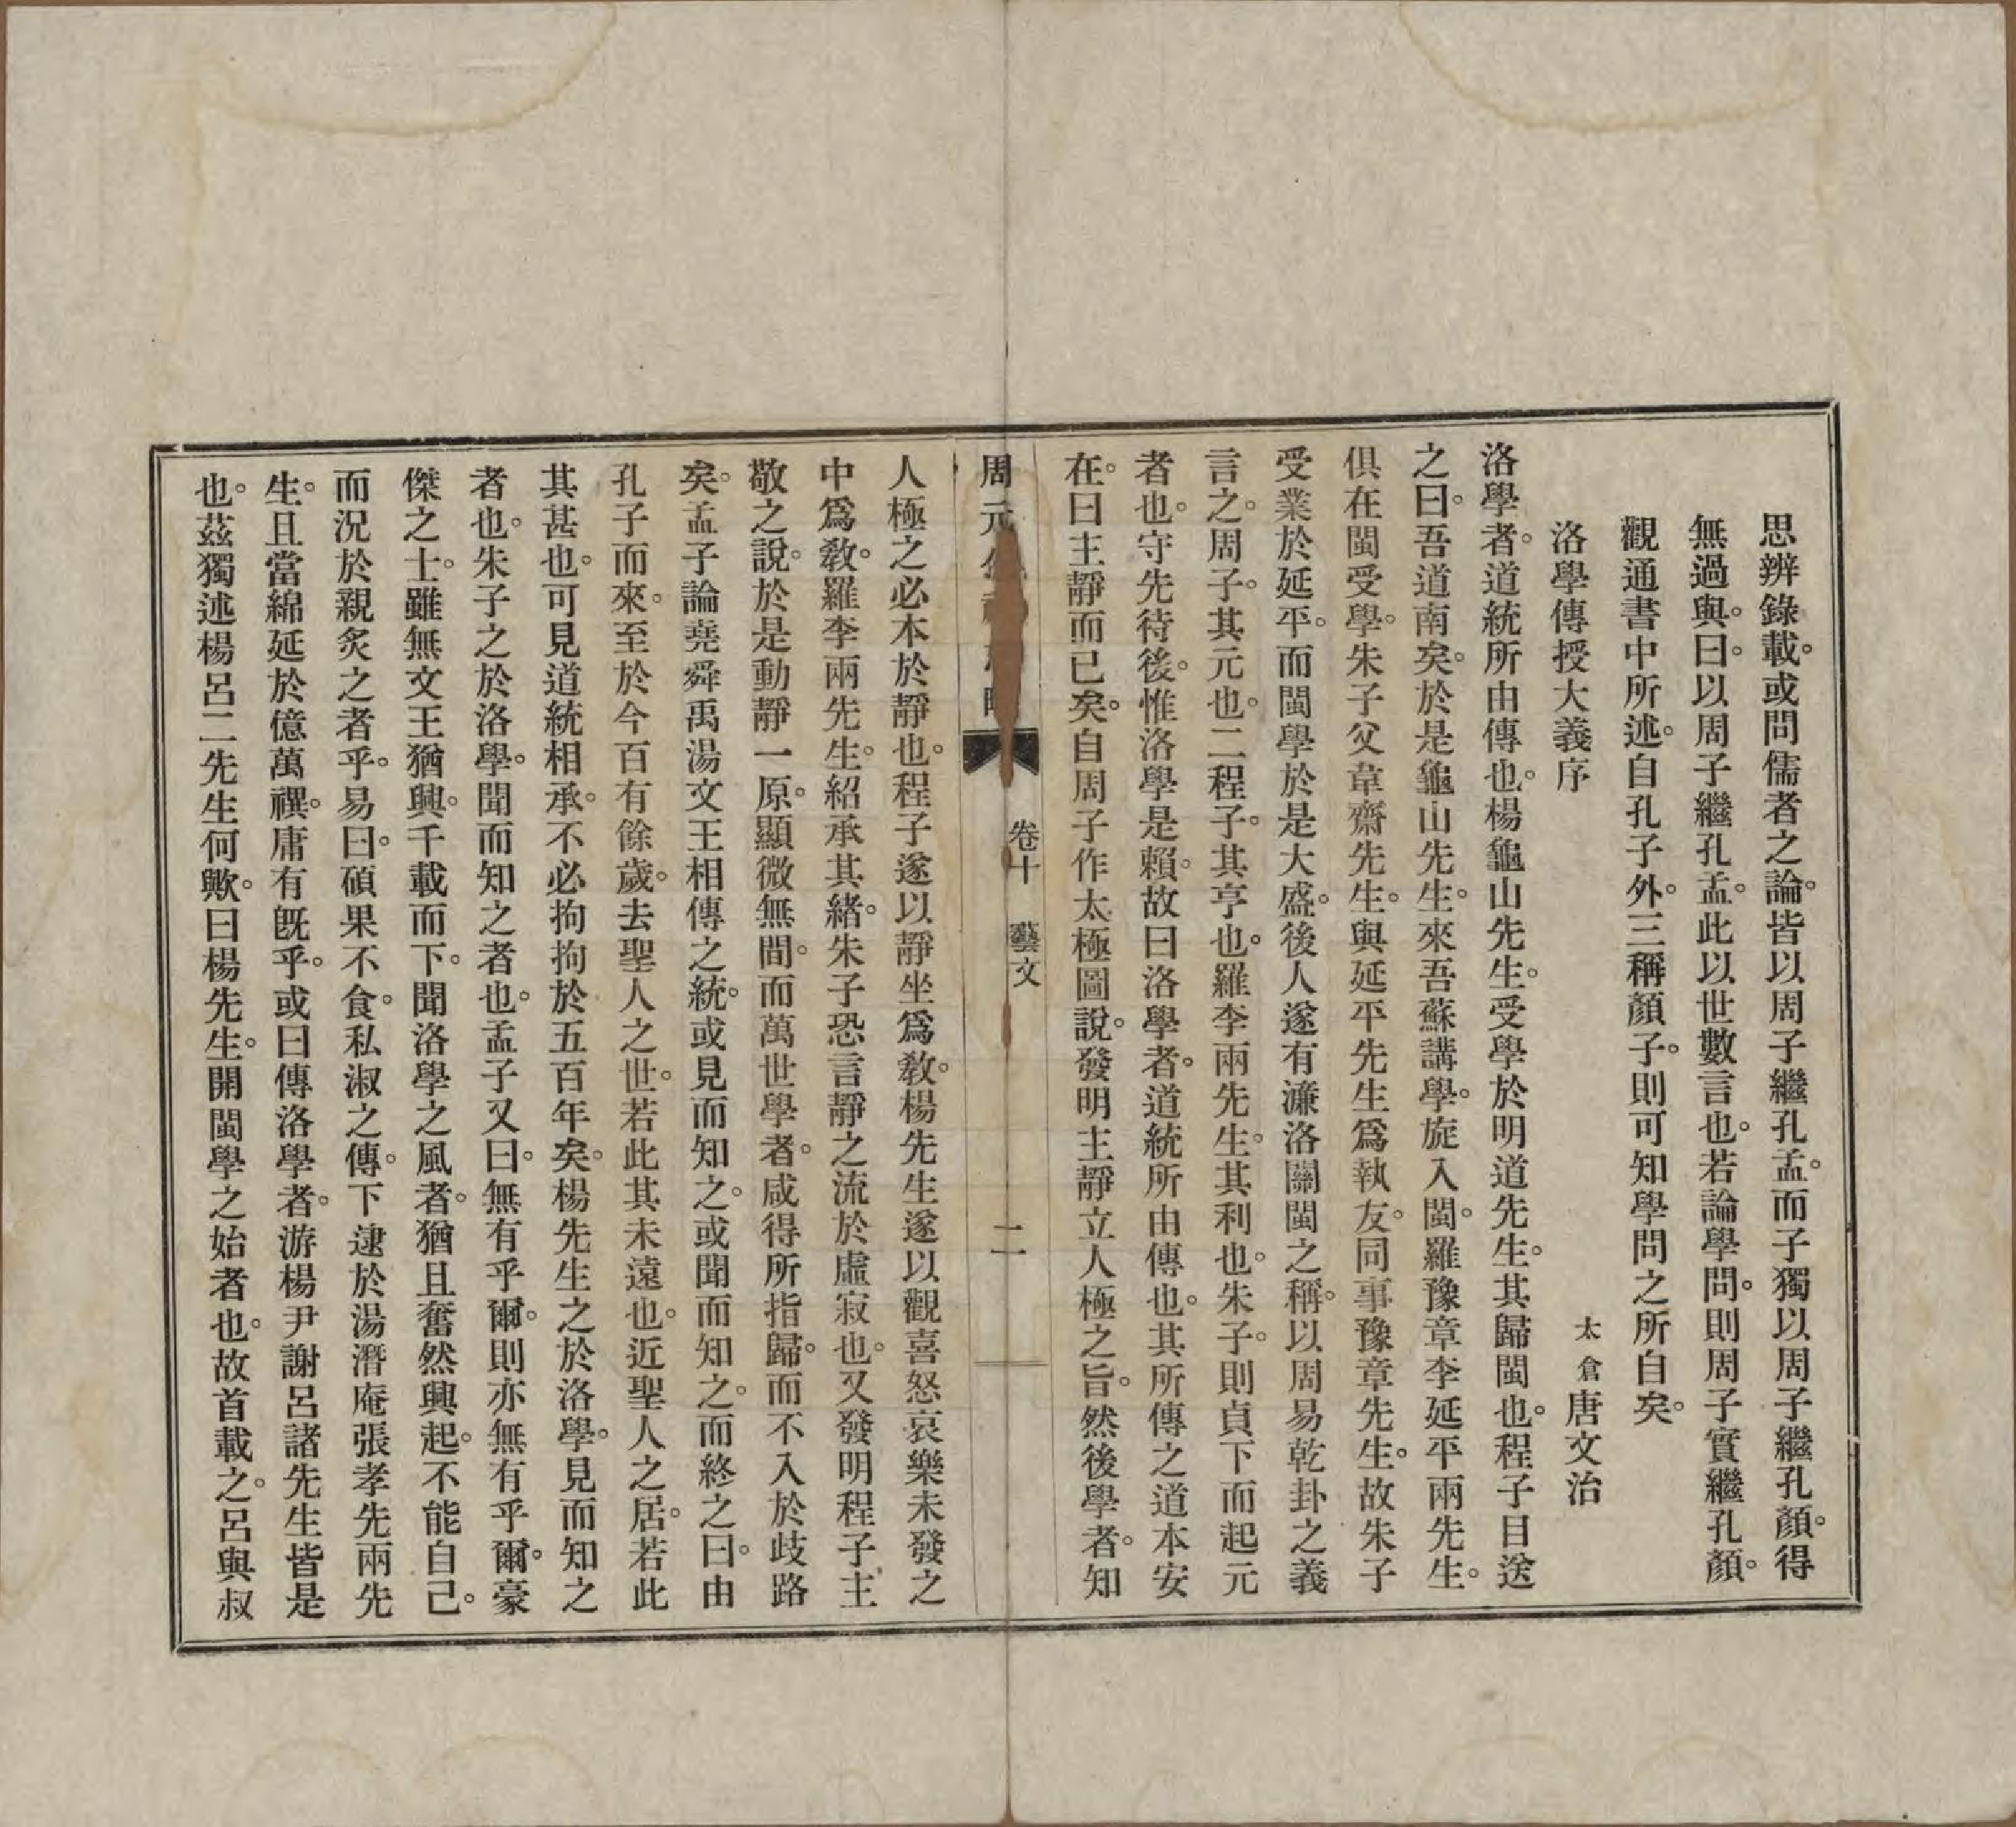 思辨錄載。或問儒者之論。皆以周子繼孔孟。而子獨以周子繼孔顏。得
無過與。曰。以周子繼孔孟。此以世數言也。若論學問。則周子實繼孔顏。
觀通書中所述。自孔子外。三稱顏子。則可知學問之所自矣。
洛學傳授大義序
太倉唐文治
洛學者。道統所由傳也。楊龜山先生。受學於明道先生。其歸閩也。程子目送
之曰。吾道南矣。於是龜山先生。來吾蘇講學。旋入閩。羅豫章李延平兩先生。
俱在閩受學。朱子父韋齋先生。與延平先生爲執友。同事豫章先生。故朱子
受業於延平。而閩學於是大盛。後人遂有濂洛關閩之稱。以周易乾卦之義
言之。周子。其元也。二程子。其亨也。羅李兩先生。其利也。朱子。則貞下而起元
者也。守先待後。惟洛學是賴。故曰洛學者。道統所由傳也。其所傳之道本安
在。曰主靜而已矣。自周子作太極圖說。發明主靜立人極之旨。然後學者。知
周元
卷十 藝文
二
人極之必本於靜也。程子遂以靜坐爲敎。楊先生遂以觀喜怒哀樂未發之
中爲敎。羅李兩先生。紹承其緒。朱子恐言靜之流於虛寂也。又發明程子主
敬之說。於是動靜一原。顯微無間。而萬世學者。咸得所指歸。而不入於歧路
矣。孟子論堯舜禹湯文王相傳之統。或見而知之。或聞而知之。而終之曰。由
孔子而來。至於今百有餘歲。去聖人之世。若此其未遠也。近聖人之居。若此
其甚也。可見道統相承。不必拘拘於五百年矣。楊先生之於洛學。見而知之
者也。朱子之於洛學。聞而知之者也。孟子又曰。無有乎爾。則亦無有乎爾。豪
傑之士。雖無文王猶興。千載而下。聞洛學之風者。猶且奮然興起。不能自己。
而況於親炙之者乎。易曰。碩果不食。私淑之傳。下逮於湯潛庵張孝先兩先
生。且當綿延於億萬禩。庸有旣乎。或曰傳洛學者。游楊尹謝呂諸先生皆是
也。茲獨述楊呂二先生何歟。曰楊先生。開閩學之始者也。故首載之。呂與叔